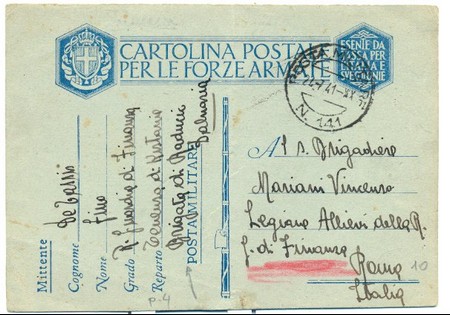 CARTOLINA POSTALE
PER LE FORZE ARMATE
ESENTE DA
TASSA PER
L'ITALIA E
POSTA MILITARE
24.7.41-XX
N. 141
Mittente
Cognome
Nome Fino
Grado R. Guardia di Finanza
Reparto Tenenza di
Brigata di Raducic
Dalmazia
POSTA MILITARE
P-4
Al S. Brigadiere
Mariani Vincenzo
Legione Allievi della R.
G. di Finanza
Roma
10
Italia